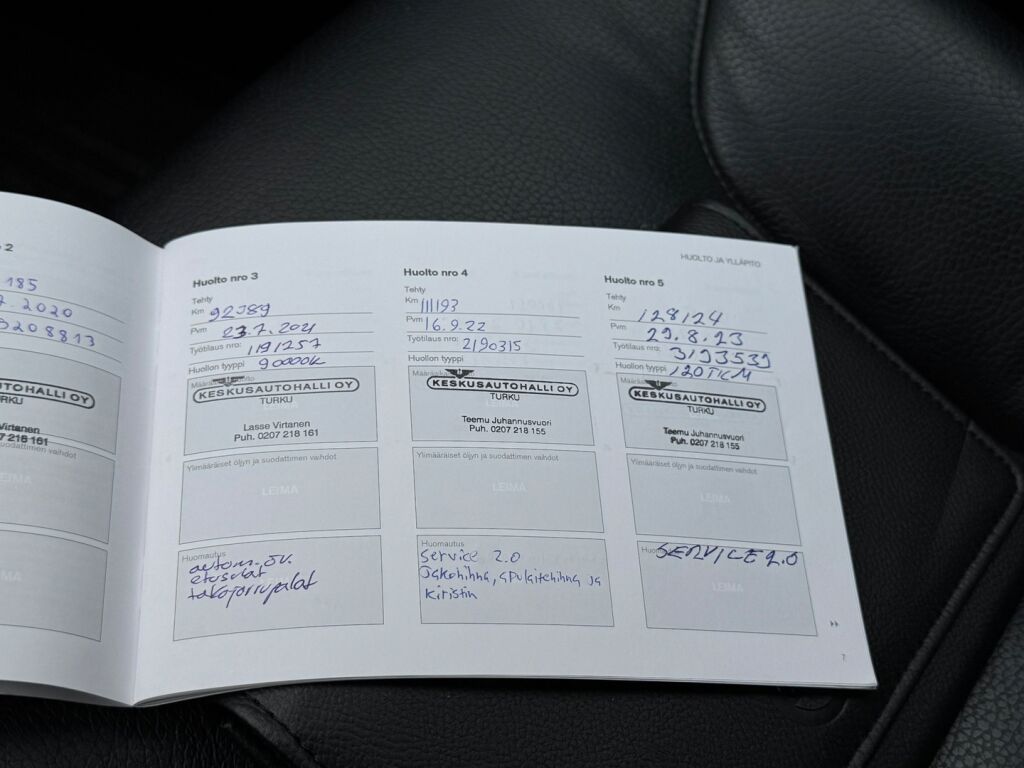 2
185
7.2020
3208813
TOHALLI OY
TURKU
Virtanen
7 218 161
suodattimen vaihdot
HUOLTO JA YLLÄPITO
Huolto nro 3
Tehty
Km 92789
Pvm 23.7.2021
Työtilaus nro: 1191257
Huollon tyyppi 90000k
KESKUSAUTOHALLI OY
TURKU
LEIMA
Lasse Virtanen
Puh. 0207 218 161
Ylimääräiset öljyn ja suodattimen vaihdot
LEIMA
Huomautus
autom.öv.
etusulat
takajarrupalat
Huolto nro 4
Tehty
Km 111193
Pvm 16.9.22
Työtilaus nro: 2190315
Huollon tyyppi
KESKUSAUTOHALLI OY
TURKU
Teemu Juhannusvuori
Puh. 0207 218 155
Ylimääräiset öljyn ja suodattimen vaihdot
LEIMA
Huomautus
Service 2.0
Jakohihna, apulaitehihna ja
kiristin
Huolto nro 5
Tehty
Km 128124
Pvm 29.8.23
Työtilaus nro: 3193539
Huollon tyyppi 120TKM
KESKUSAUTOHALLI OY
TURKU
Teemu Juhannusvuori
Puh. 0207 218 155
Ylimääräiset öljyn ja suodattimen vaihdot
LEIMA
SERVICE 2.0
LEIMA
7